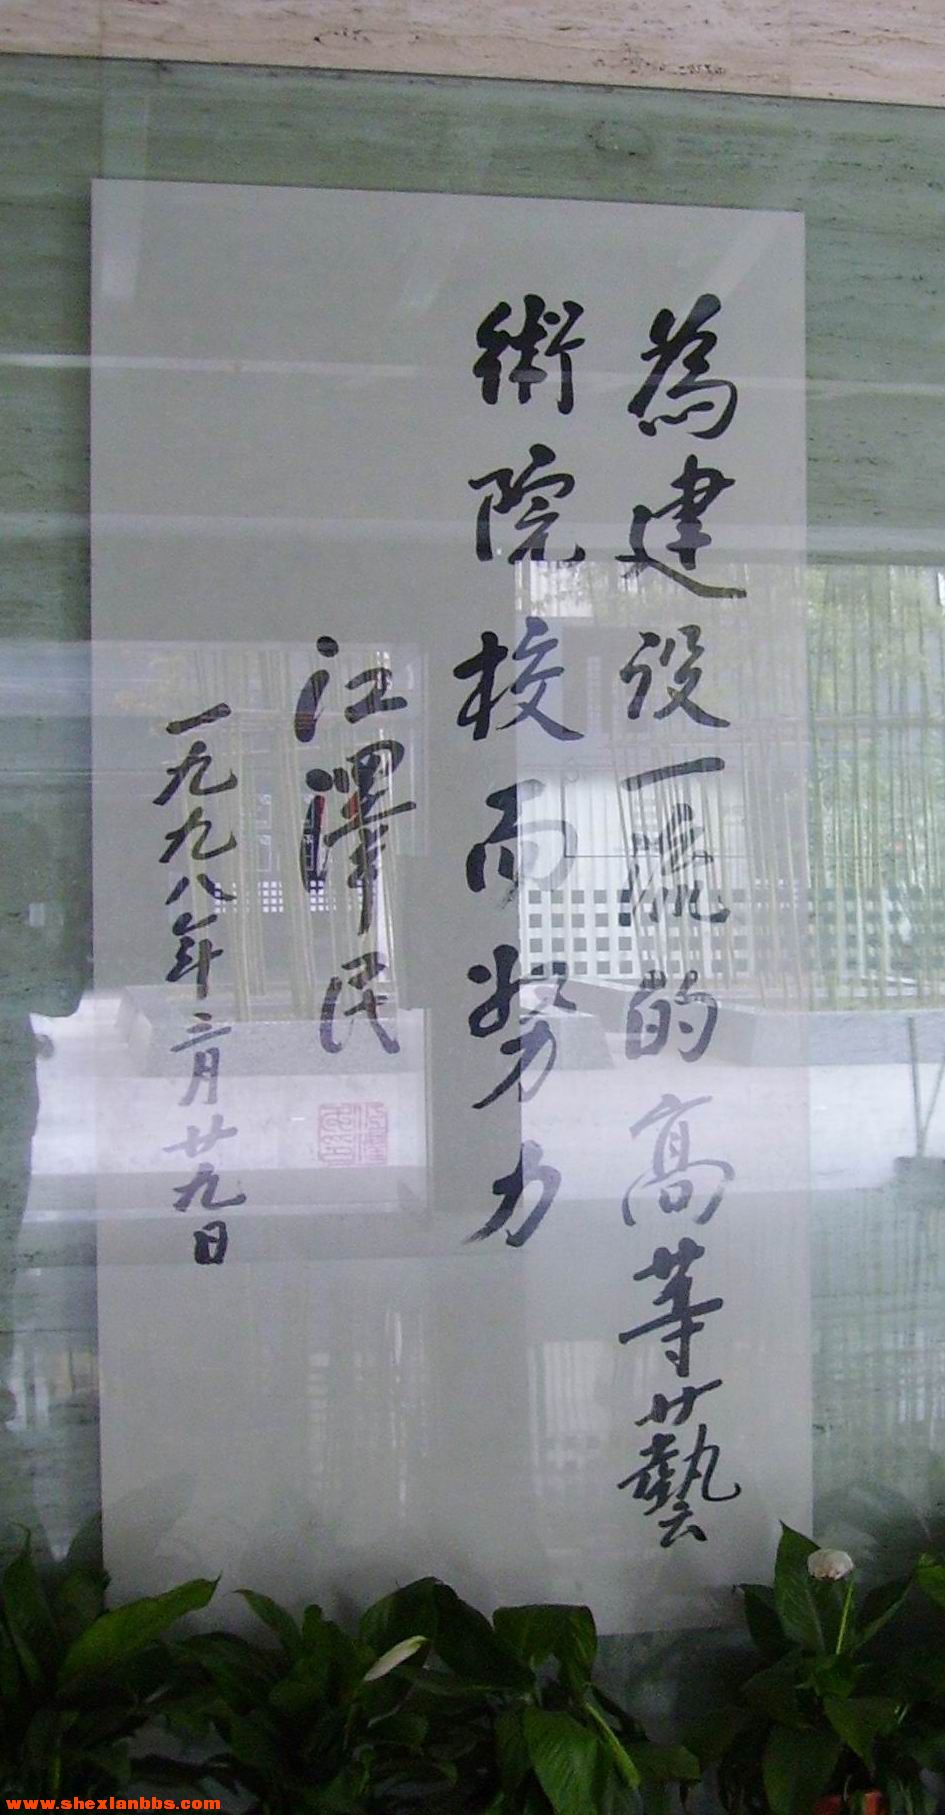 為建设一流的高等藝
術院校而努力
江澤民
一九九八年三月廿九日
www.shexianbbs.com